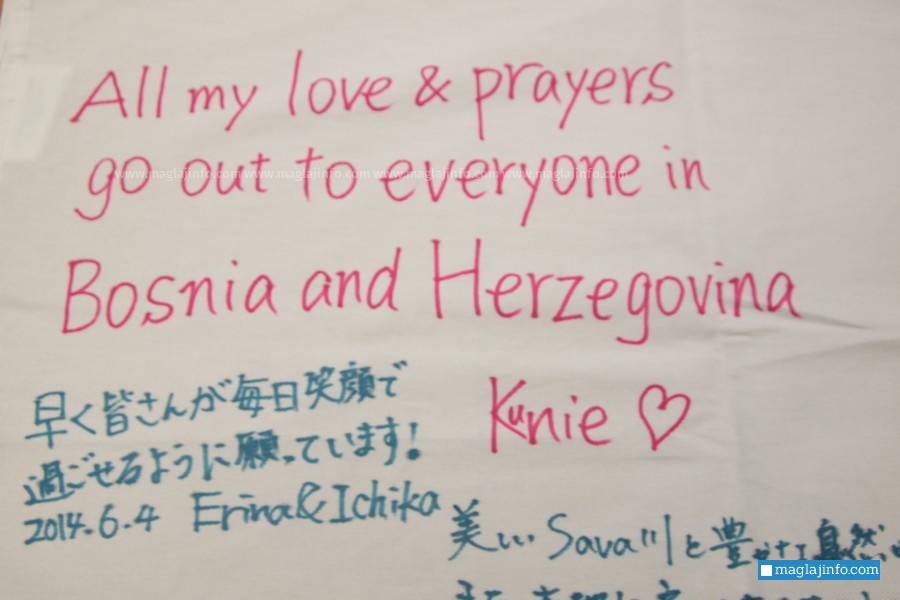 All my love & prayers
go out to everyone in
Bosnia and Herzegovina
Kunie ♡
早く皆さんが毎日笑顔で
過ごせるように願っています!
2014.6.4 Erina & Ichika
美しい Sava川と豊かな自然
www.maglajinfo.com www.maglajinfo.com www.maglajinfo.com www.maglajinfo.com
maglajinfo.com